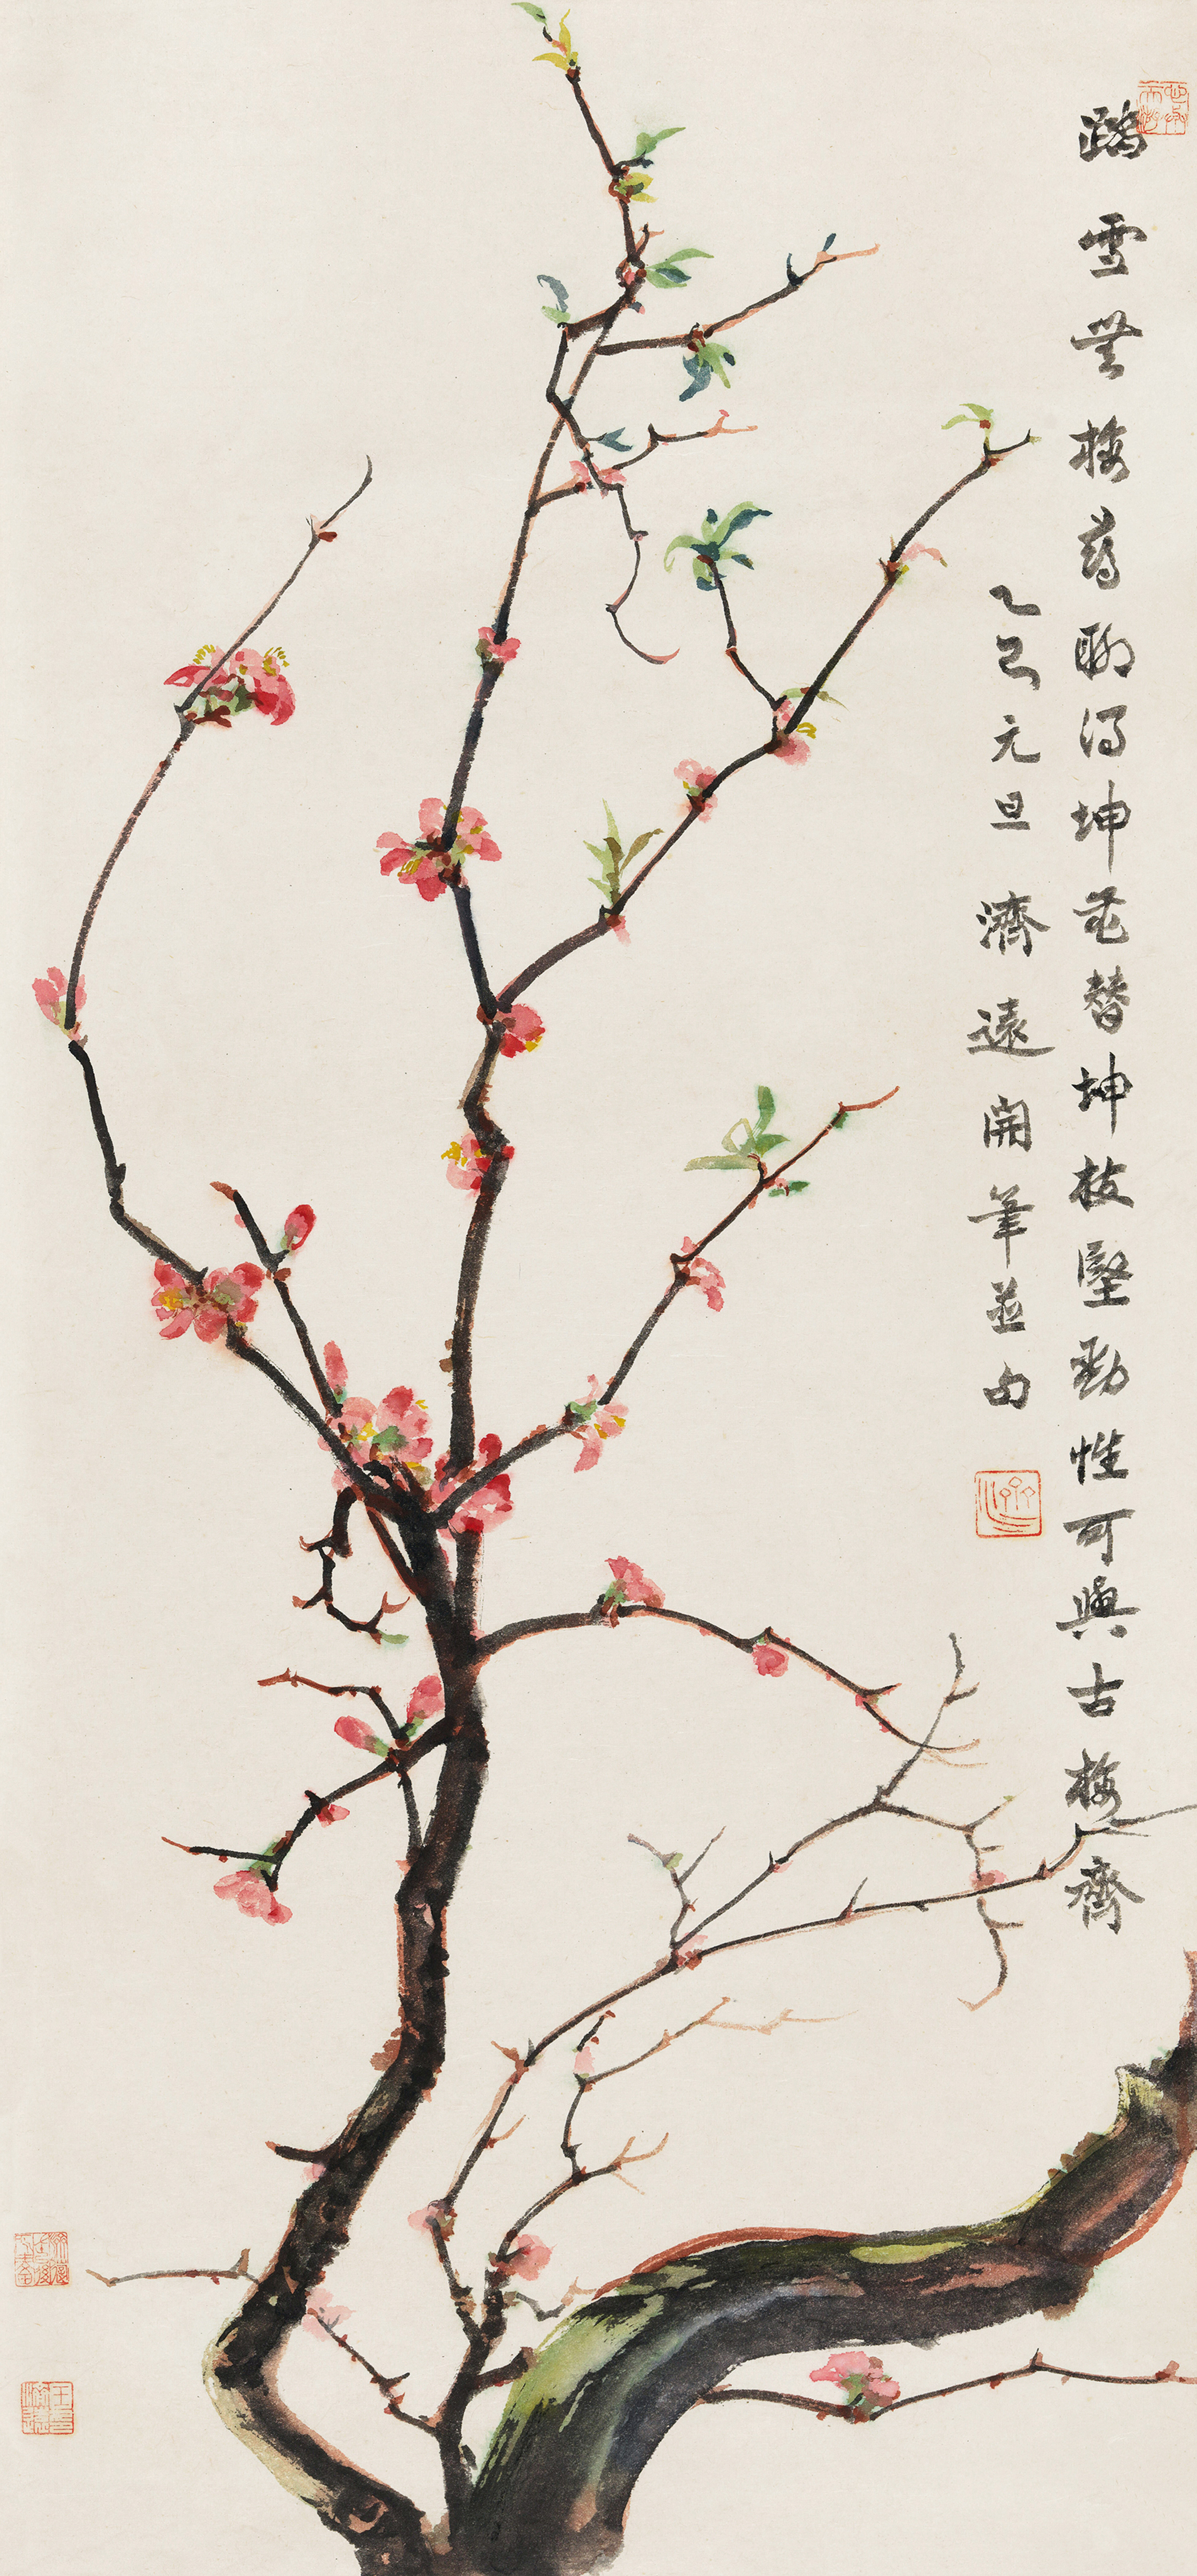 踏雪無梅尋聊得坤花替坤枝堅勁性可與古梅齊
乙巳元旦濟遠開筆並句